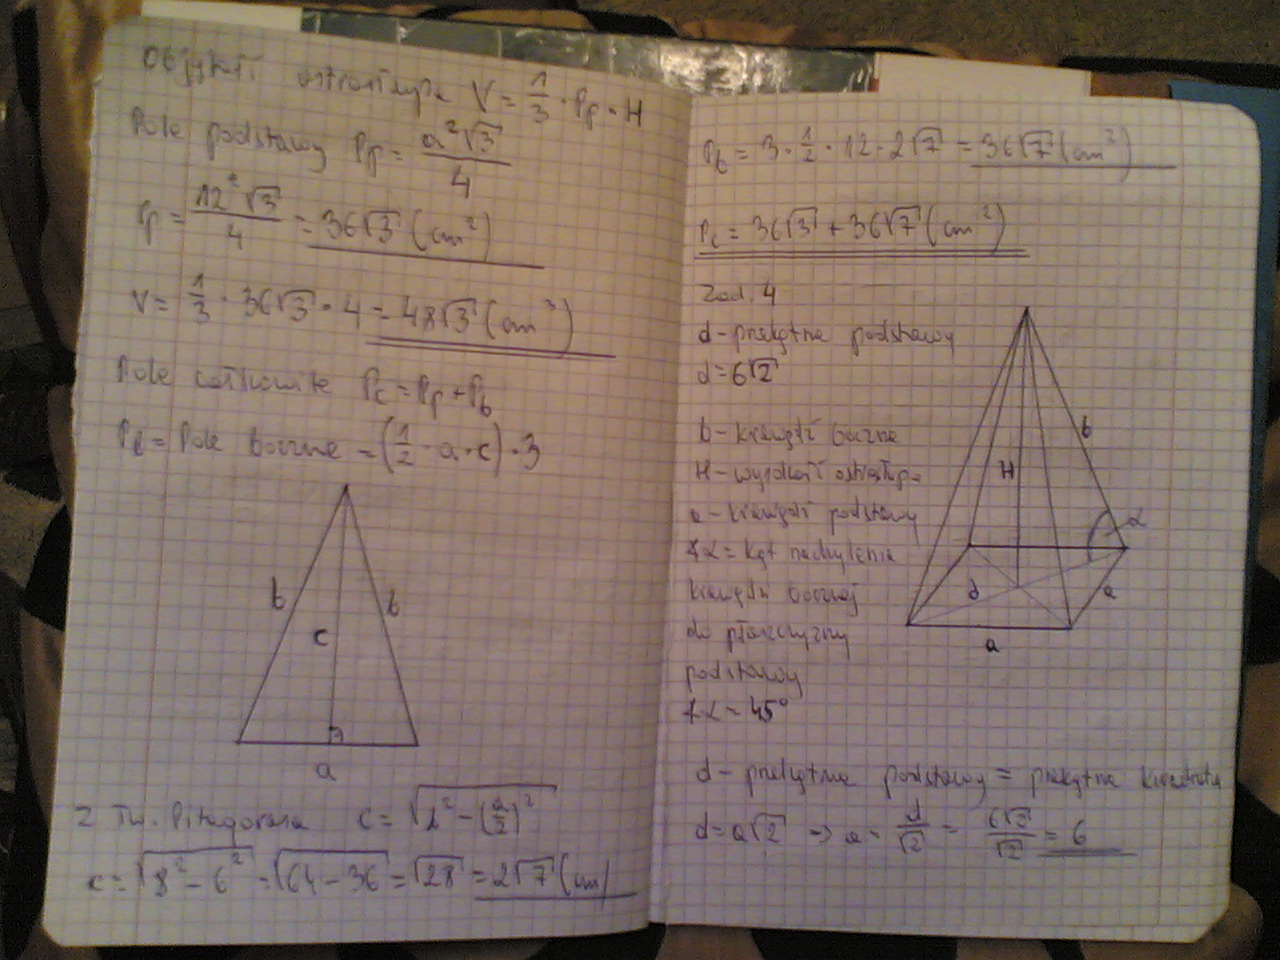 Objętość ostrosłupa V = 1/3 · Pp · H
Pole podstawy Pp = a²√3/4
Pp = 12²√3/4 = 36√3 (cm²)
V = 1/3 · 36√3 · 4 = 48√3 (cm³)
Pole całkowite Pc = Pp + Pb
Pb = Pole boczne = (1/2 · a · c) · 3
b
b
c
a
Z Tw. Pitagorasa c = √(b² - (a/2)²)
c = √(8² - 6²) = √(64 - 36) = √28 = 2√7 (cm)
Pb = 3 · 1/2 · 12 · 2√7 = 36√7 (cm²)
Pc = 36√3 + 36√7 (cm²)
Zad. 4
d - przekątna podstawy
d = 6√2
b - krawędź boczna
H - wysokość ostrosłupa
a - krawędź podstawy
∢α = kąt nachylenia
krawędzi bocznej
do płaszczyzny
podstawy
∢α = 45°
b
H
α
d
a
a
d - przekątna podstawy = przekątna kwadratu
d = a√2 → a = d/√2 = 6√2/√2 = 6